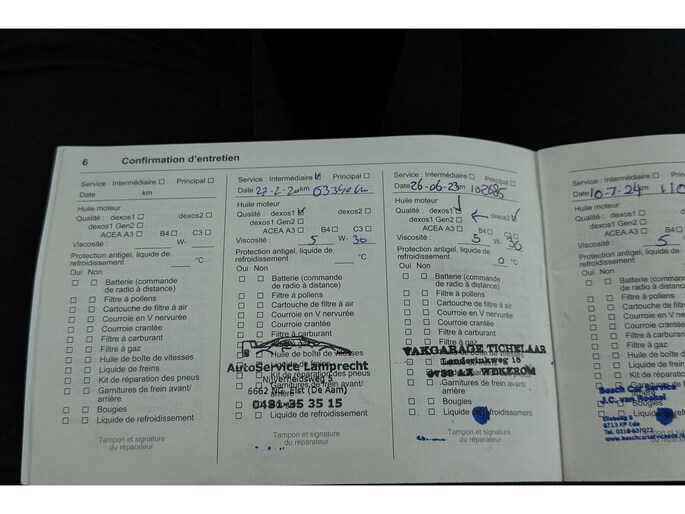 6 Confirmation d'entretien
Service : Intermédiaire Principal
Date km
Huile moteur
Qualité : dexos1 dexos2
dexos1 Gen2
ACEA A3 B4 C3
Viscosité : W-
Protection antigel, liquide de
refroidissement °C
Oui Non
Batterie (commande
de radio à distance)
Filtre à pollens
Cartouche de filtre à air
Courroie en V nervurée
Courroie crantée
Filtre à carburant
Filtre à gaz
Huile de boîte de vitesses
Liquide de freins
Kit de réparation des pneus
Garnitures de frein avant/
arrière
Bougies
Liquide de refroidissement
Tampon et signature
du réparateur
Service : Intermédiaire Principal
Date km
Huile moteur
Qualité : dexos1 dexos2
dexos1 Gen2
ACEA A3 B4 C3
Viscosité : 5 W- 30
Protection antigel, liquide de
refroidissement °C
Oui Non
Batterie (commande
de radio à distance)
Filtre à pollens
Cartouche de filtre à air
Courroie en V nervurée
Courroie crantée
Filtre à carburant
Huile de boîte de vitesses
AutoService Lamprecht
Nijverheidsweg 5
Garnitures de frein avant/
6662 NG Elst (De Aam)
0481-35 35 15
Liquide de refroidissement
Tampon et signature
du réparateur
Service : Intermédiaire Principal
Date 26-06-23 km 102685
Huile moteur
Qualité : dexos1 dexos2
dexos1 Gen2
ACEA A3 B4
Viscosité : 5 W- 30
Protection antigel, liquide de
refroidissement 0 °C
Oui Non
Batterie (commande
de radio à distance)
Filtre à pollens
Cartouche de filtre à air
Courroie en V nervurée
Courroie crantée
Filtre à carburant
Filtre à gaz
VAKGARAGE TICHELAAR
Lunterseweg
WEKEROM
Kit de réparation des pneus
Garnitures de frein avant/
arrière
Bougies
Liquide de refroidissement
Tampon et signature
du réparateur
Service : Intermédiaire
Date 10-7-24 km
Huile moteur
Qualité : dexos1
dexos1 Gen2
ACEA A3
Viscosité : 5
Protection antigel, liquide
refroidissement
Oui Non
Batterie (comma
de radio à distan
Filtre à pollens
Cartouche de filtre
Courroie en V ner
Courroie crantée
Filtre à carburant
Filtre à gaz
Huile de boîte de
Liquide de freins
Kit de réparation
Garnitures de frein
Beesch Car Service
J.C. van Roekel
Bougies
6713 KP Ede
Tel. 0318-637072
Tampon et signature
du réparateur